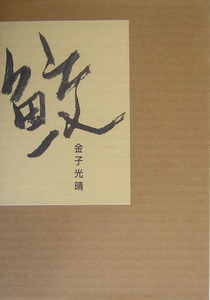 鮫
金子光晴